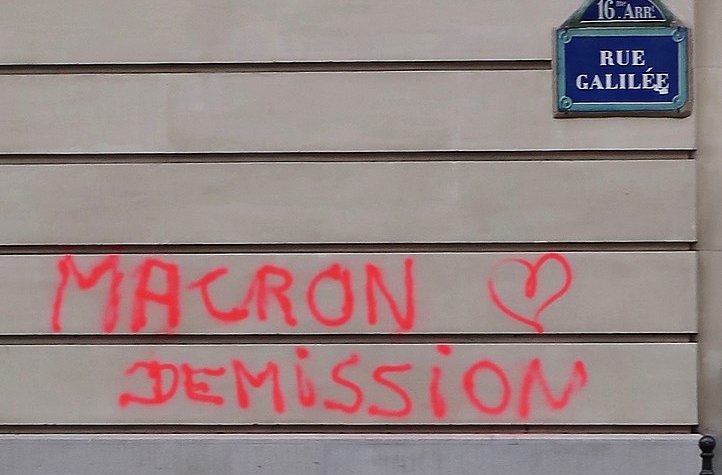 16me ARRt
RUE
GALILÉE
MACRON ♡
DEMiSSiON